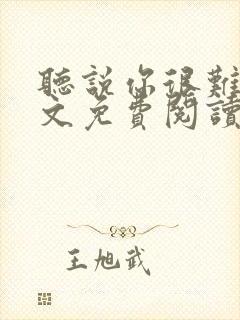 聽說你很難
文免費閱讀
王旭武